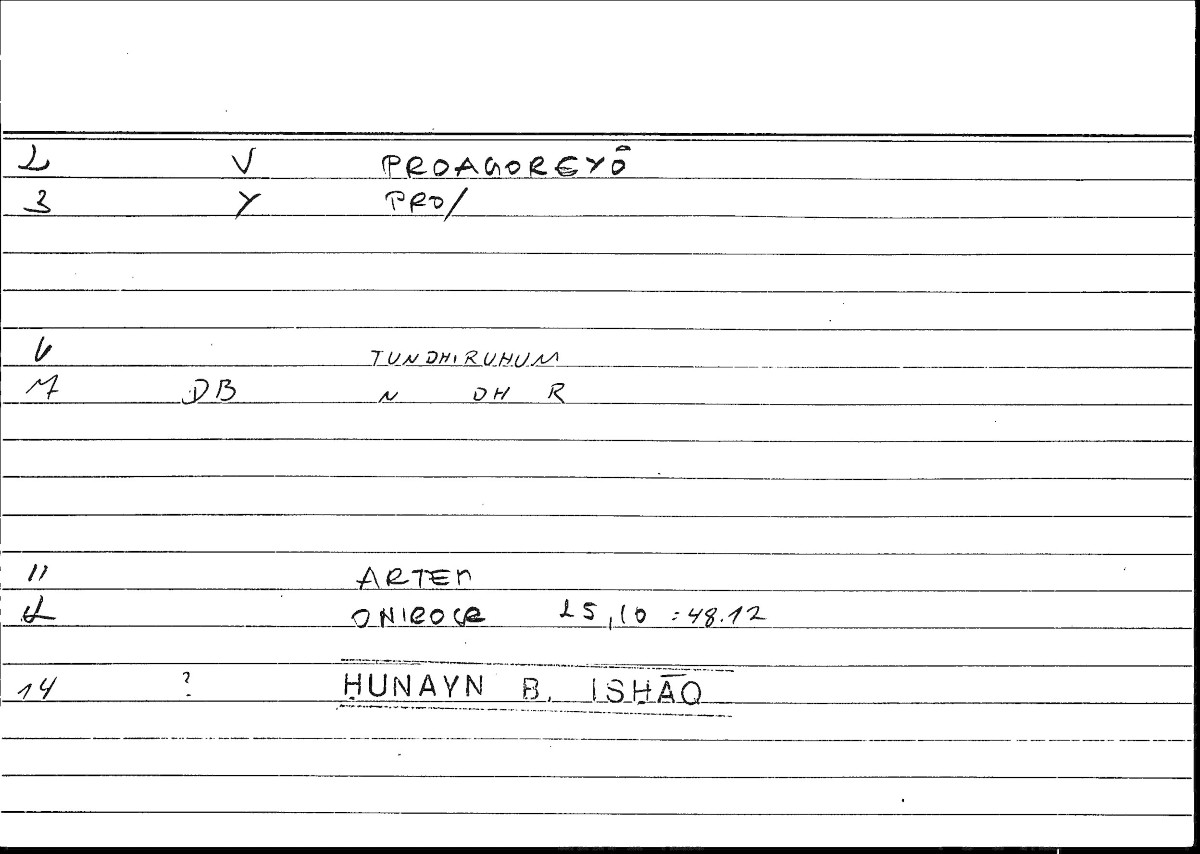 2 V PROAGOREYÔ
3 Y PRO/
6 TUNDHIRUHUM
7 DB N DH R
11 ARTEM
12 ONIROCR 25,10 :48.12
14 ? ḤUNAYN B. ISḤĀQ